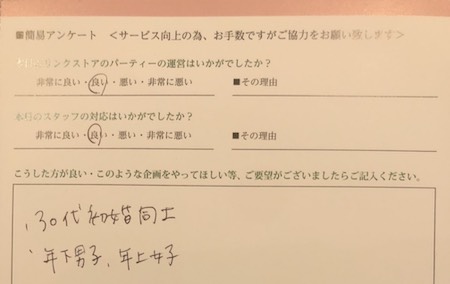 ■簡易アンケート ＜サービス向上の為、お手数ですがご協力をお願い致します＞
本日のリンクストアのパーティーの運営はいかがでしたか？
非常に良い・良い・悪い・非常に悪い ■その理由
本日のスタッフの対応はいかがでしたか？
非常に良い・良い・悪い・非常に悪い ■その理由
こうした方が良い・このような企画をやってほしい等、ご要望がございましたらご記入ください。
、30代初婚同士
、年下男子、年上女子